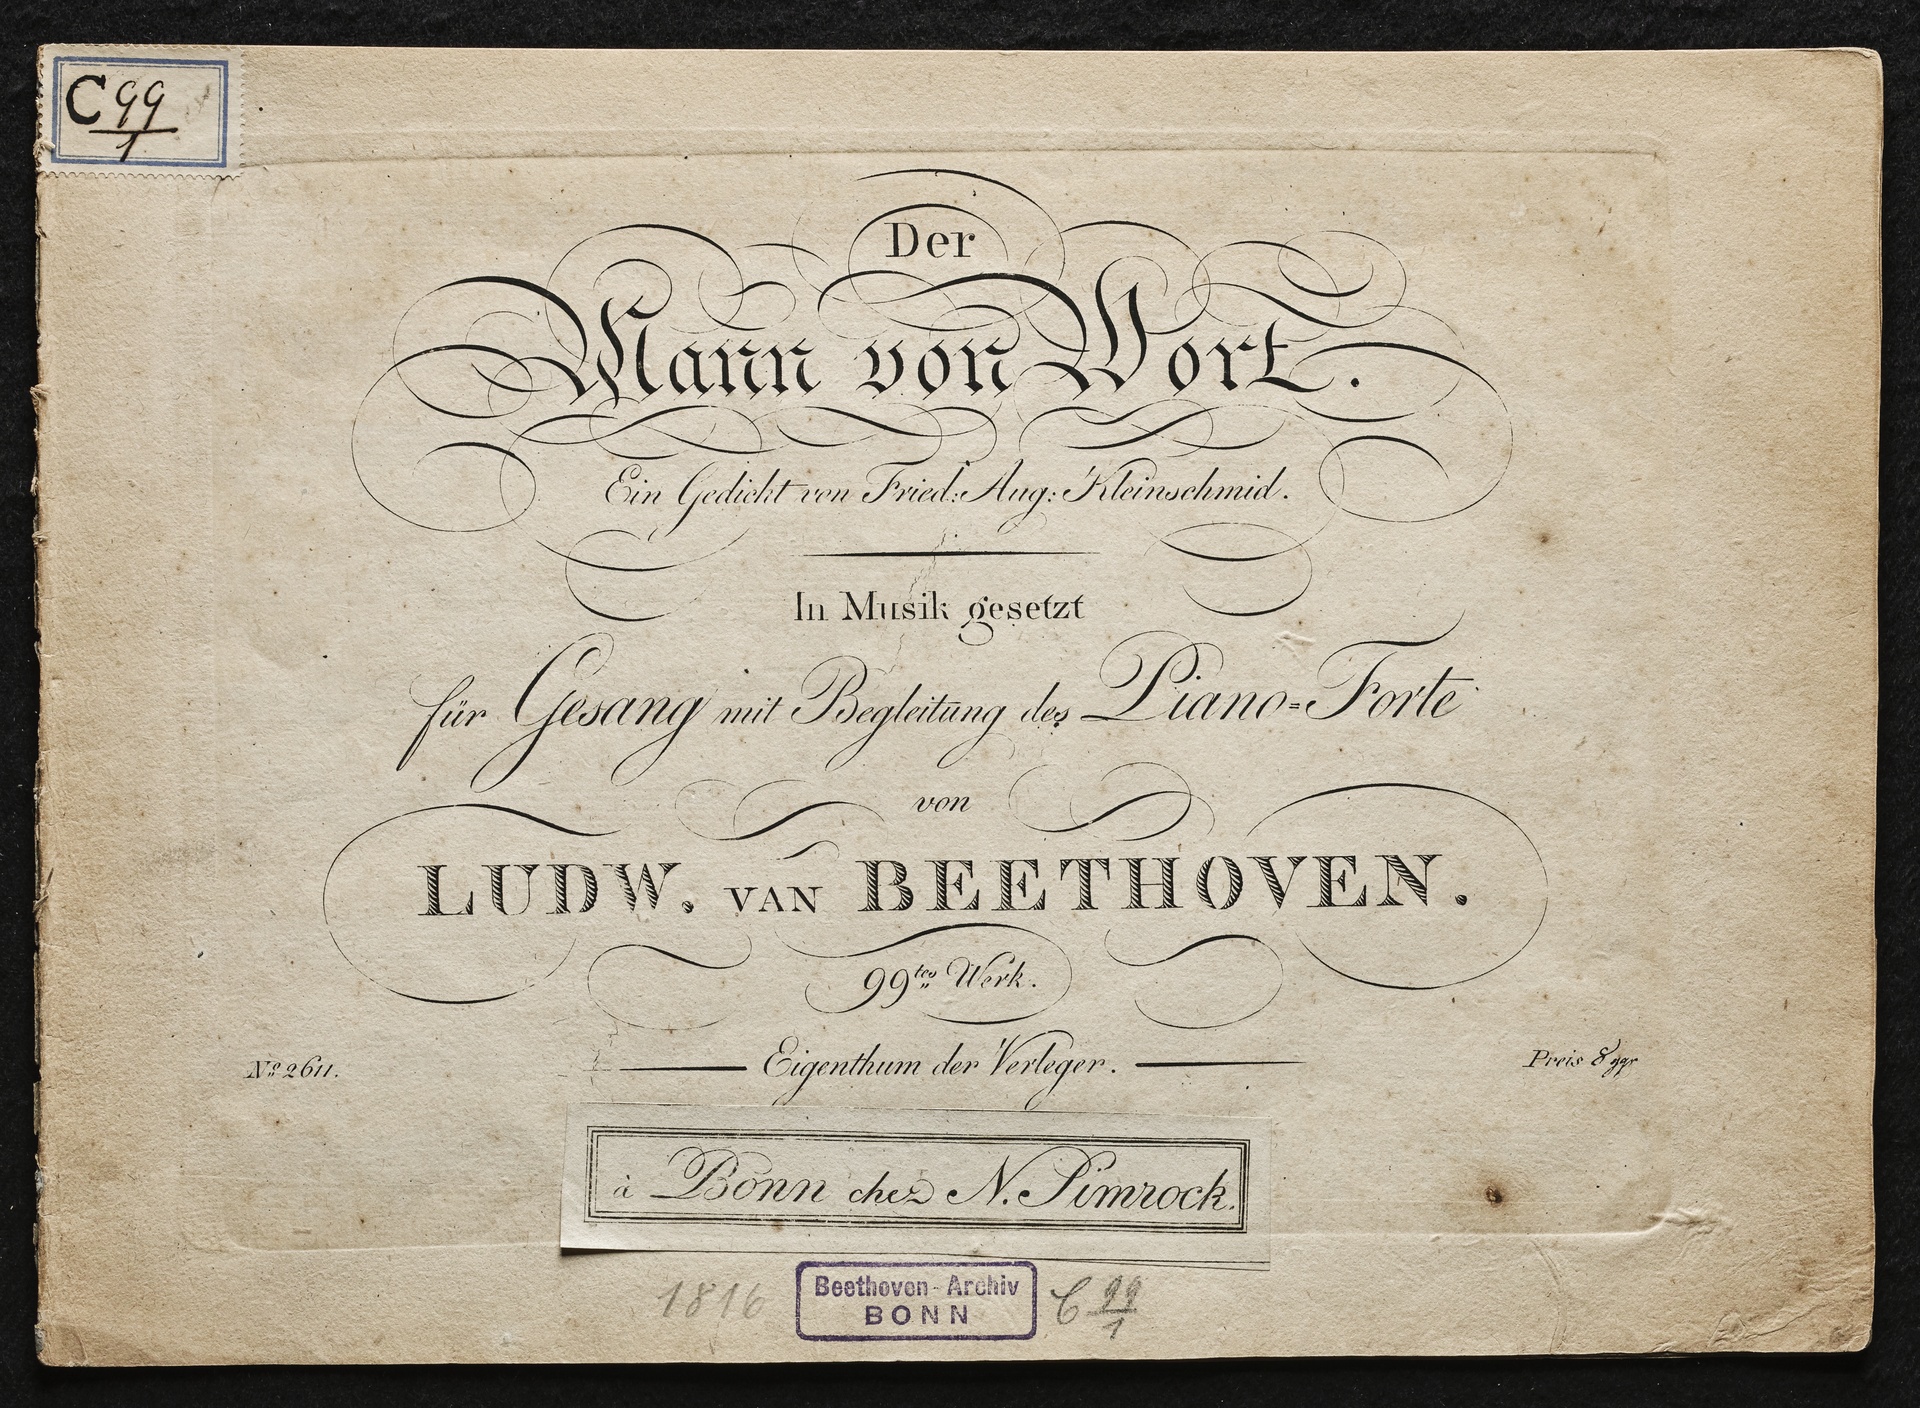 C 99/1
Der
Mann von Wort.
Ein Gedicht von Fried: Aug: Kleinschmid.
In Musik gesetzt
für Gesang mit Begleitung des Piano=Forte
von
LUDW. VAN BEETHOVEN.
99tes Werk.
Eigenthum der Verleger.
No 2611.
Preis 8 ggr
à Bonn chez N. Simrock.
1816
Beethoven-Archiv
BONN
C 99/1